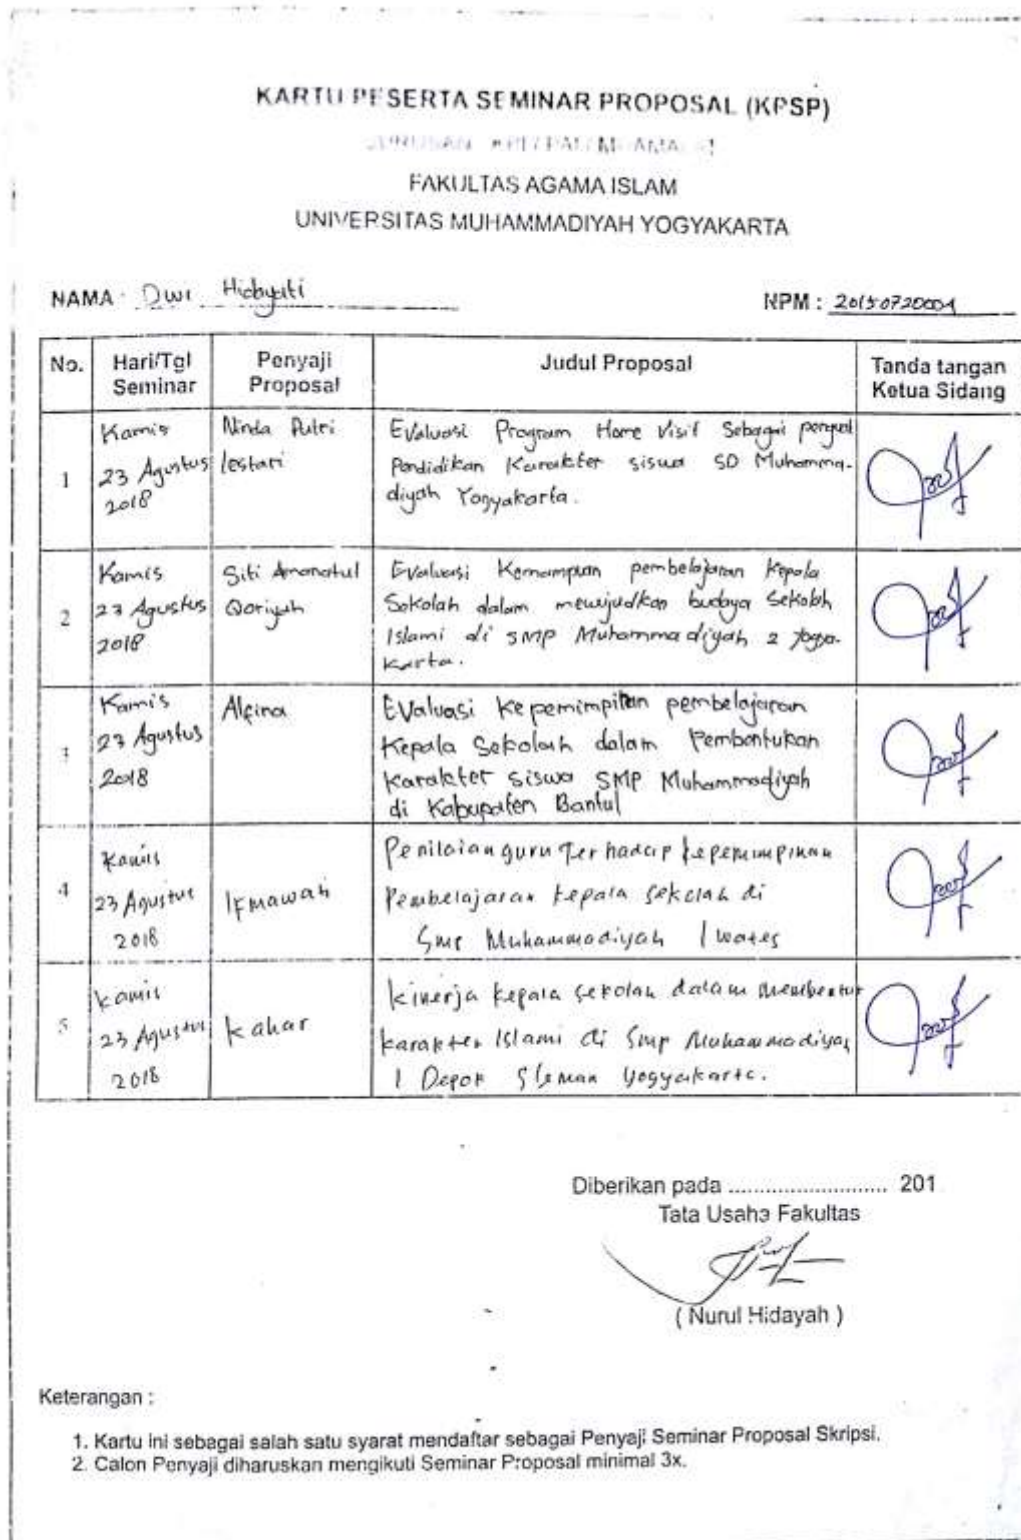 KARTU PESERTA SEMINAR PROPOSAL (KPSP)
FAKULTAS AGAMA ISLAM
UNIVERSITAS MUHAMMADIYAH YOGYAKARTA
NAMA : Dwi Hidayati
NPM : 20150720001
No. Hari/Tgl Seminar Penyaji Proposal Judul Proposal Tanda tangan Ketua Sidang
1
Kamis
23 Agustus
2018
Ninda Putri
lestari
Evaluasi Program Home Visit Sebagai
Pendidikan Karakter siswa SD Muhamma-
diyah Yogyakarta.
2
Kamis
23 Agustus
2018
Siti Amanatul
Qoriyah
Evaluasi pembelajaran kepala
Sekolah dalam mewujudkan budaya sekolah
Islami di SMP Muhammadiyah 2 Yogya-
karta.
3
Kamis
23 Agustus
2018
Alfina
Evaluasi kepemimpinan pembelajaran
Kepala Sekolah dalam Pembentukan
Karakter siswa SMP Muhammadiyah
di Kabupaten Bantul
4
Kamis
23 Agustus
2018
Irmawah
Penilaian guru Terhadap kepemimpinan
Pembelajaran kepala sekolah di
Smp Muhammadiyah 1 wates
5
kamis
23 Agustus
2018
kahar
kinerja kepala sekolah dalam membentuk
karakter Islami di Smp Muhammadiyah
1 Depok Sleman Yogyakarta.
Diberikan pada .......................... 201
Tata Usaha Fakultas
( Nurul Hidayah )
Keterangan :
1. Kartu ini sebagai salah satu syarat mendaftar sebagai Penyaji Seminar Proposal Skripsi.
2. Calon Penyaji diharuskan mengikuti Seminar Proposal minimal 3x.